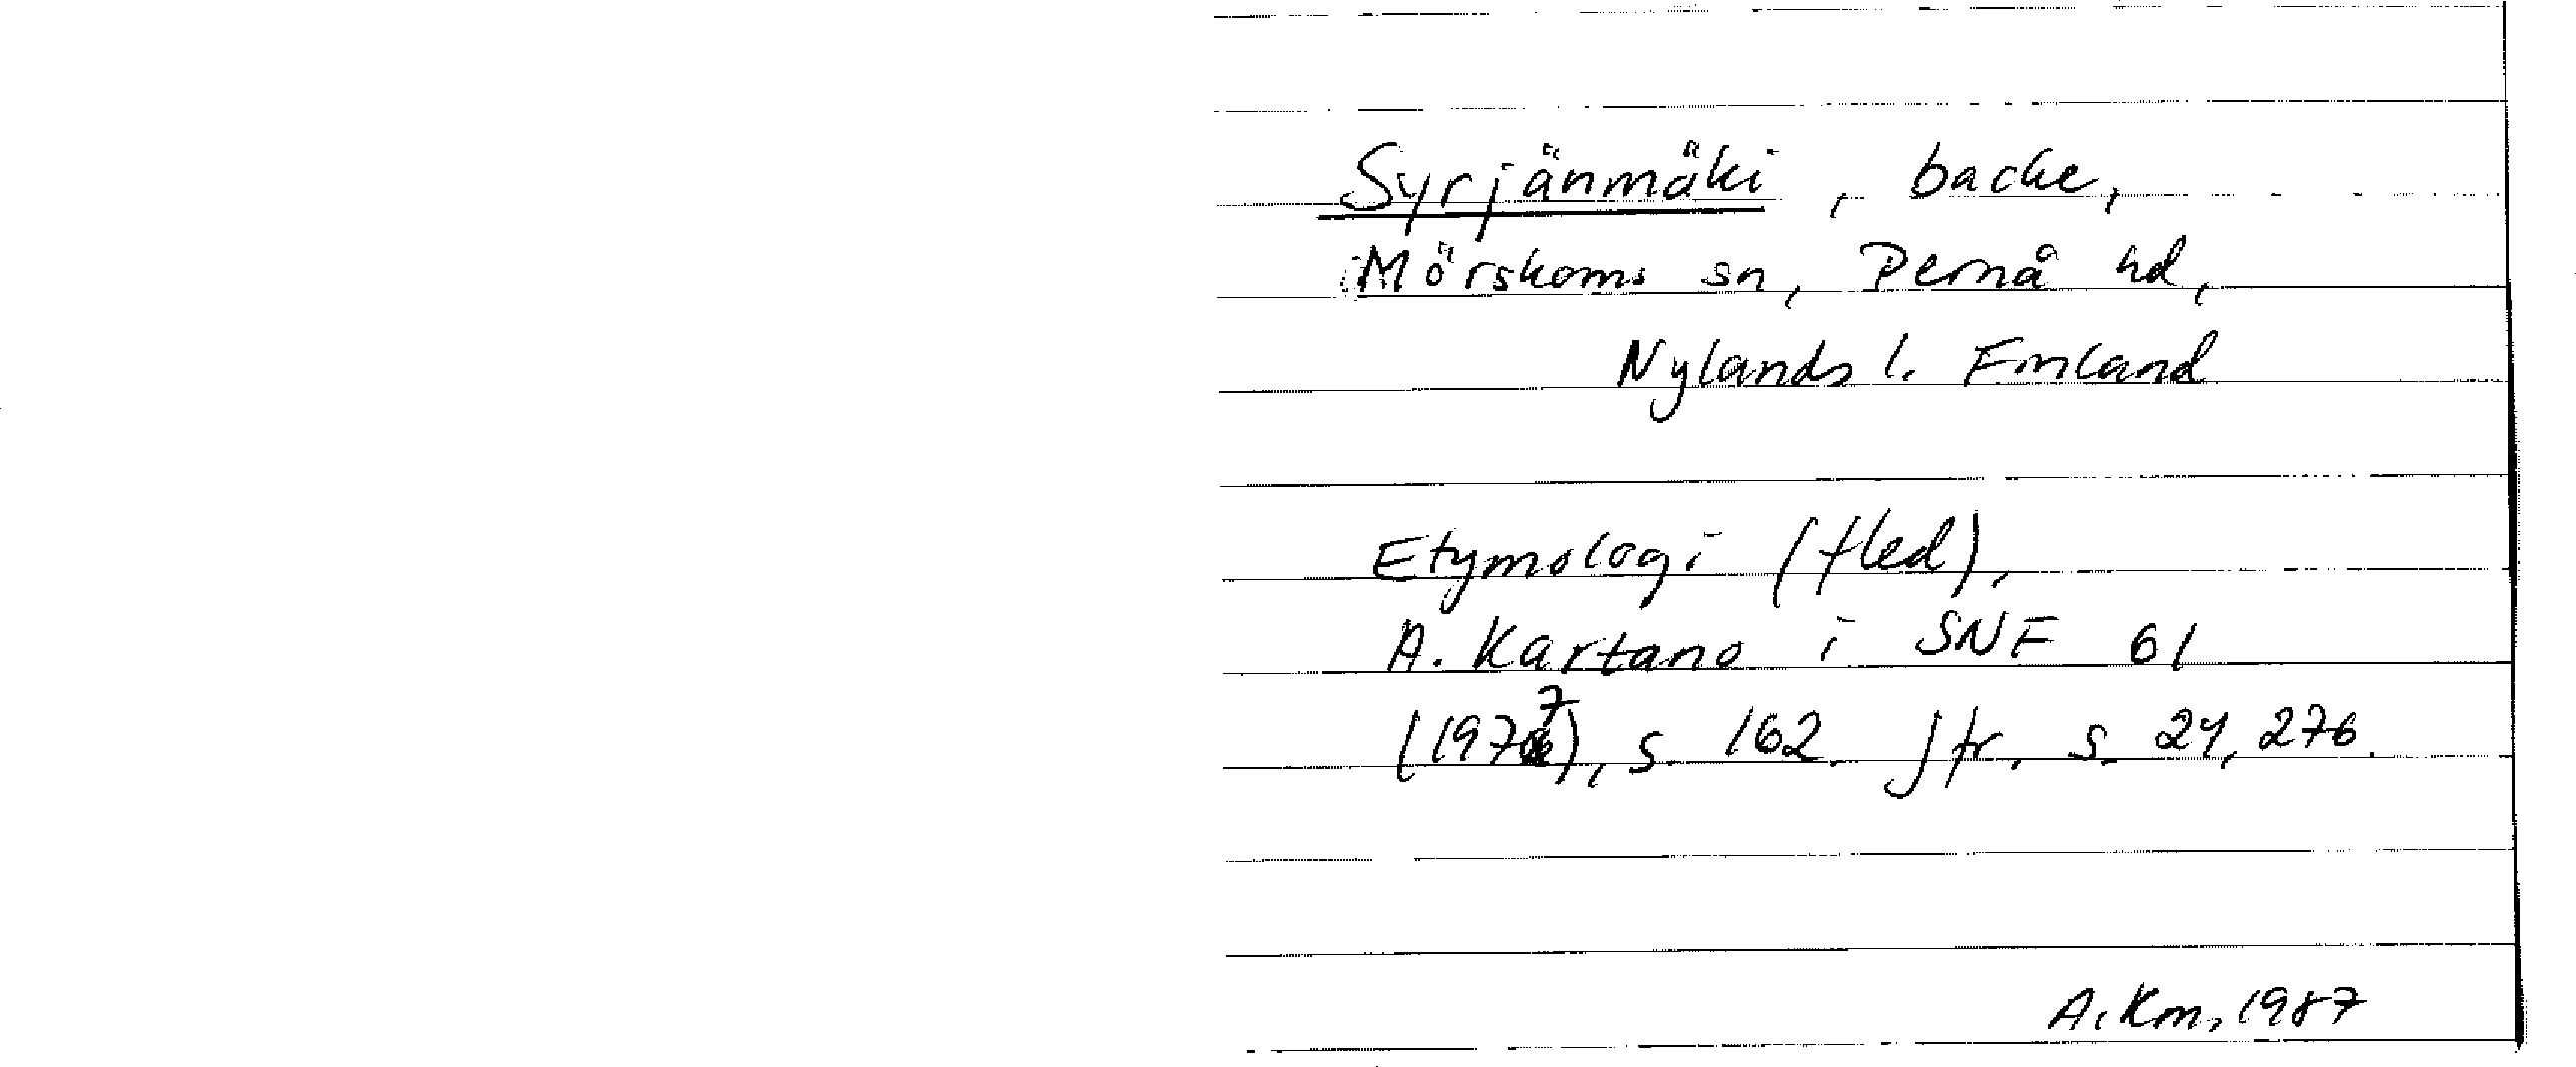 Syrjänmäki, backe,
Mörskoms sn, Pernå hd,
Nylands l. Finland
Etymologi (fled),
A. Kartano i SNF 61
(1977), s. 162. Jfr. s. 24, 276.
A. Km, 1987